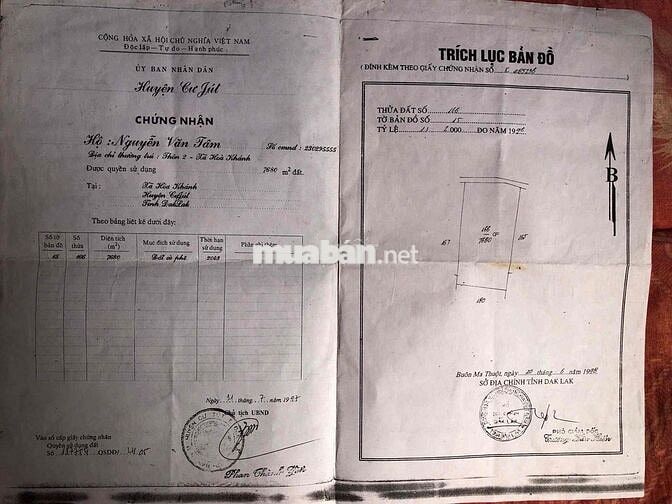 CỘNG HÒA XÃ HỘI CHỦ NGHĨA VIỆT NAM
Độc lập - Tự do - Hạnh phúc
ỦY BAN NHÂN DÂN
Huyện Cư Jút
CHỨNG NHẬN
Hộ: Nguyễn Văn Tám Số cmnd: 230295555
Địa chỉ thường trú: Thôn 2 - Xã Hoà Khánh
Được quyền sử dụng 7680 m² đất.
Tại: Xã Hòa Khánh
Huyện CưJút
Tỉnh DakLak
Theo bảng liệt kê dưới đây:
Số tờ bản đồ Số thửa Diện tích (m²) Mục đích sử dụng Thời hạn sử dụng Phần ghi thêm
15 166 7680 Đất cà phê 2043
Ngày 31 tháng 7 năm 1998
Chủ tịch UBND
Vào sổ cấp giấy chứng nhận
Quyền sử dụng đất
Số QSDĐ/
Phan Thành
TRÍCH LỤC BẢN ĐỒ
(ĐÍNH KÈM THEO GIẤY CHỨNG NHẬN SỐ
THỬA ĐẤT SỐ 166
TỜ BẢN ĐỒ SỐ 15
TỶ LỆ 1: 2.000 ĐO NĂM 1996
B
166
7680 CP
167
165
180
muaban.net
Buôn Ma Thuột, ngày 20 tháng 6 năm 1998
SỞ ĐỊA CHÍNH TỈNH DAK LAK
PHÓ GIÁM ĐỐC